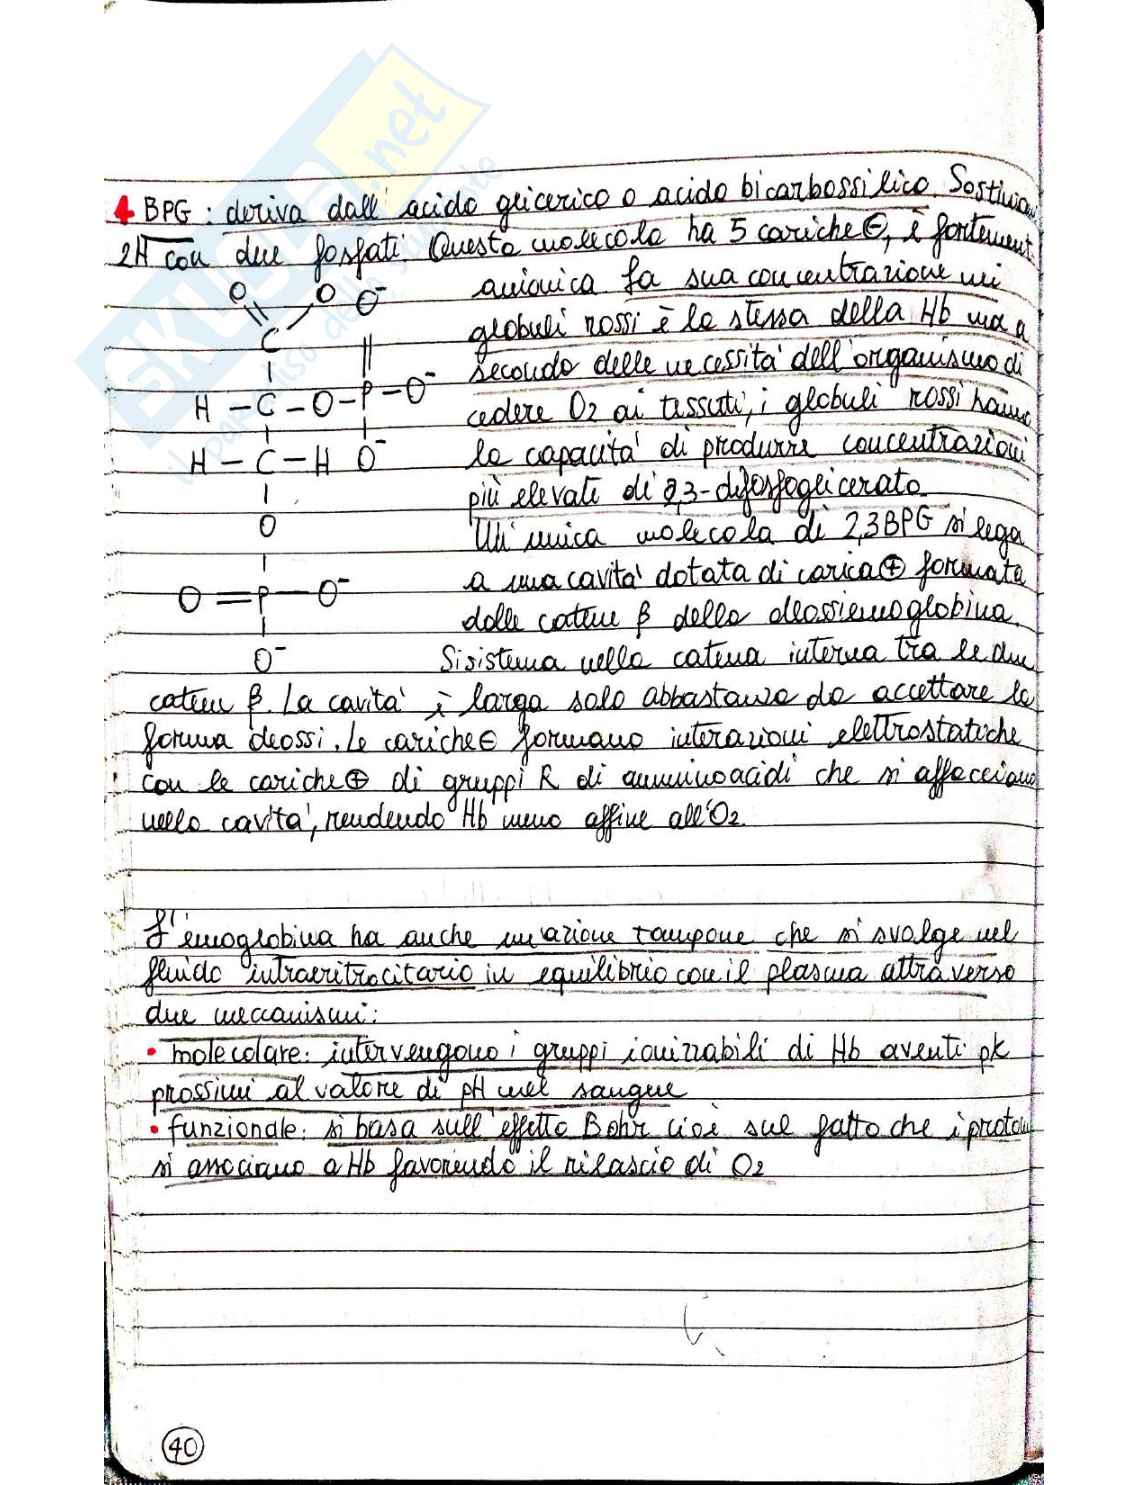 4 BPG: deriva dall'acido glicerico o acido bicarbossilico. Sostituia
2H con due fosfati. Questa molecola ha 5 cariche ⊖, è fortement.
anionica la sua concentrazione nei
globuli rossi è la stessa della Hb ma a
secondo delle necessità dell'organismo di
cedere O2 ai tessuti, i globuli rossi hanno
la capacità di produrre concentrazioni
più elevate di 2,3-difosfoglicerato.
Un'unica molecola di 2,3BPG si lega
a una cavità dotata di carica ⊕ formata
dalle catene β della deossiemoglobina.
Si sistema nella catena interna tra le due
catene β. La cavità è larga solo abbastanza da accettare la
forma deossi. Le cariche ⊖ formano interazioni elettrostatiche
con le cariche ⊕ di gruppi R di amminoacidi che si affacciano
nella cavità, rendendo Hb meno affine all'O2.
O O O⁻
C
H – C – O – P – O⁻
H – C – H O⁻
O
O = P – O⁻
O⁻
L'emoglobina ha anche un'azione tampone che si svolge nel
fluido intraeritrocitario in equilibrio con il plasma attraverso
due meccanismi:
• molecolare: intervengono i gruppi ionizzabili di Hb aventi pk
prossimi al valore di pH nel sangue
• funzionale: si basa sull'effetto Bohr cioè sul fatto che i protoni
si associano a Hb favorendo il rilascio di O2
40
SKUOLA.net
il paradiso dello studente